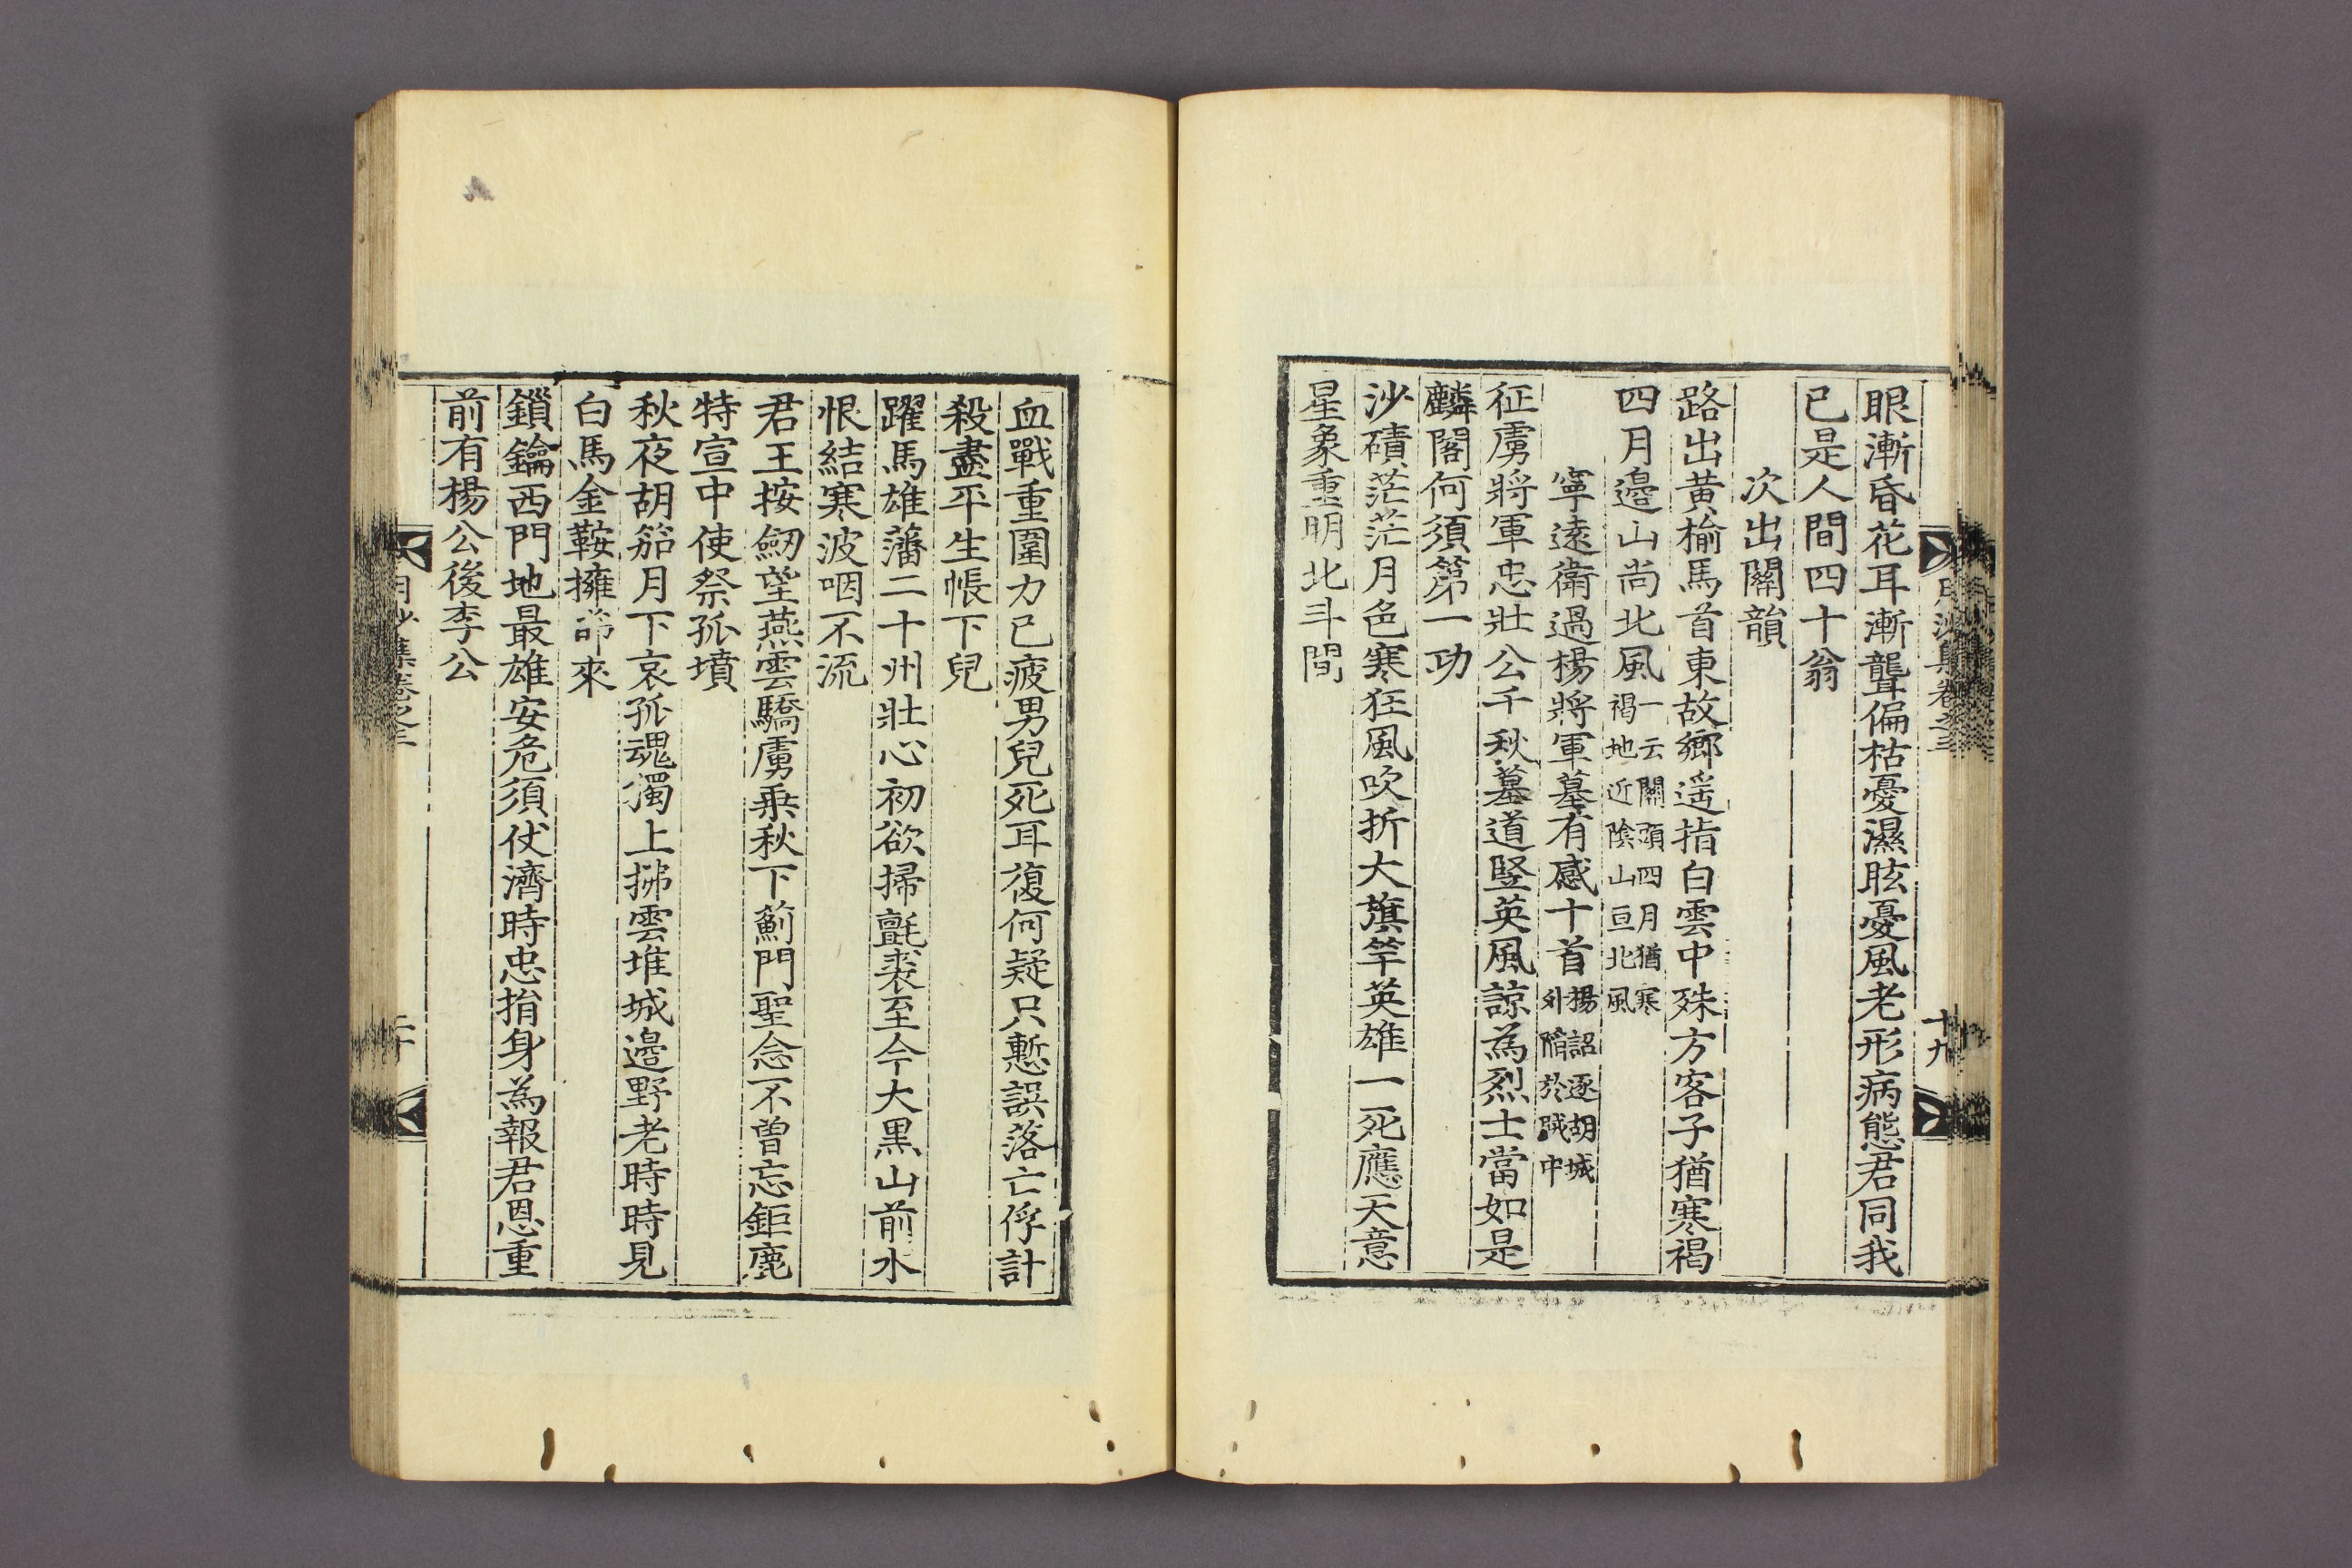 眼漸昏花耳漸聾偏枯憂濕眩憂風老形病態君同我
已是人間四十翁
次出關韻
路出黄榆馬首東故鄉遥指白雲中殊方客子猶寒褐
四月邉山尚北風一云關頭四月猶寒
褐地近陰山亘北風
寧遠衛過楊將軍墓有感十首楊詔逐胡城
外䧟於賊中
征虜將軍忠壯公千秋墓道竪英風諒為烈士當如是
麟閣何須第一功
沙磧茫茫月色寒狂風吹折大旗竿英雄一死應天意
星象重明北斗間
十九
血戰重圍力已疲男兒死耳復何疑只慙誤落亡俘計
殺盡平生帳下兒
躍馬雄藩二十州壯心初欲掃氊裘至今大黒山前水
恨結寒波咽不流
君王按劒望燕雲驕虜乗秋下薊門聖念不曽忘鉅鹿
特宣中使祭孤墳
秋夜胡笳月下哀孤魂獨上拂雲堆城邉野老時時見
白馬金鞍擁節來
鎖鑰西門地最雄安危須仗濟時忠捐身為報君恩重
前有楊公後李公